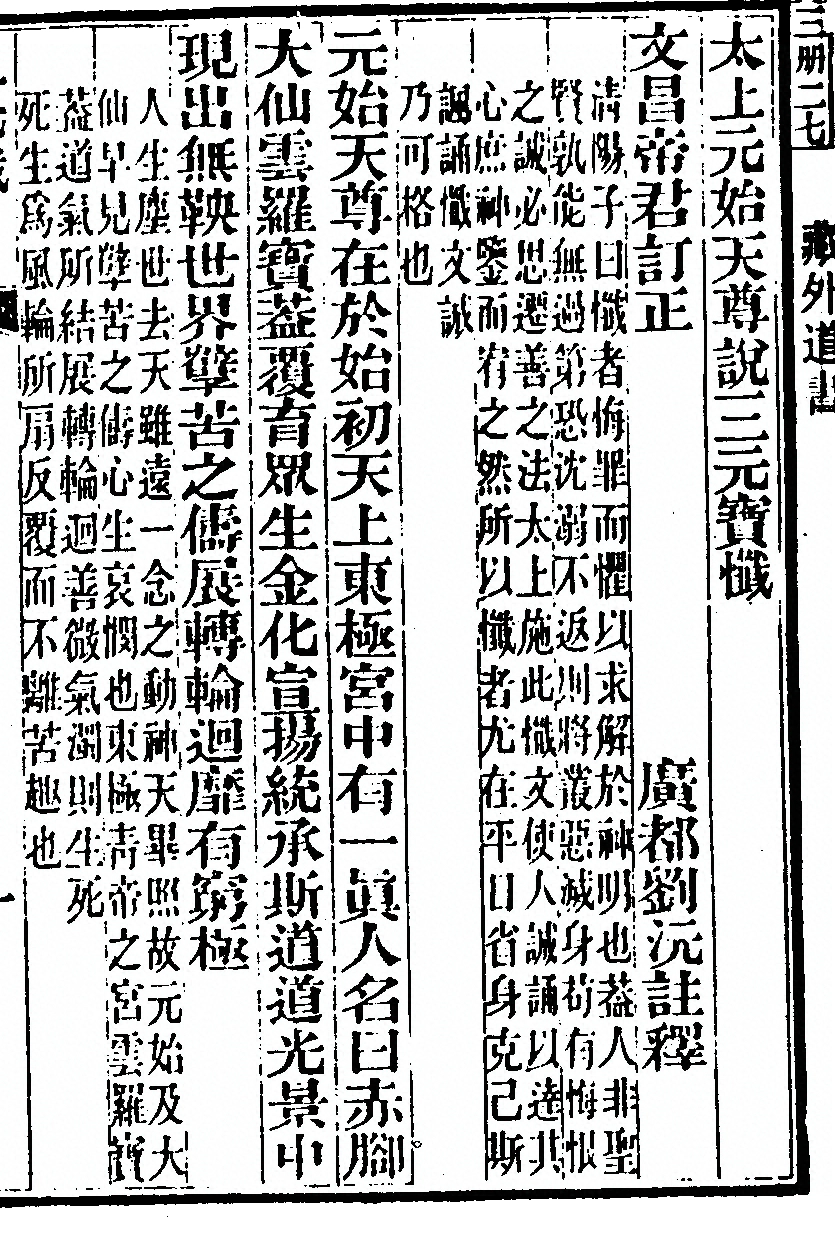 三册二七
藏外道書
太上元始天尊說三元寶懺
文昌帝君訂正 廣都劉沅註釋
清陽子曰懺者悔罪而懼以求解於神明也葢人非聖
賢孰能無過第恐沈溺不返則將叢惡滅身苟有悔恨
之誠必思遷善之法太上施此懺文使人誠誦以達其
心庶神鑒而宥之然所以懺者尤在平日省身克己斯
諷誦懺文誠
乃可格也
元始天尊在於始初天上東極宮中有一眞人名曰赤腳
大仙雲羅寶葢覆育眾生金化宣揚統承斯道道光景中
現出無鞅世界孽苦之儔展轉輪迴靡有窮極
人生塵世去天雖遠一念之動神天畢照故元始及大
仙早見孽苦之儔心生哀憫也東極青帝之宮雲羅寶
葢道氣所結展轉輪迴善微氣濁則生死
死生爲風輪所扇反覆而不離苦趣也